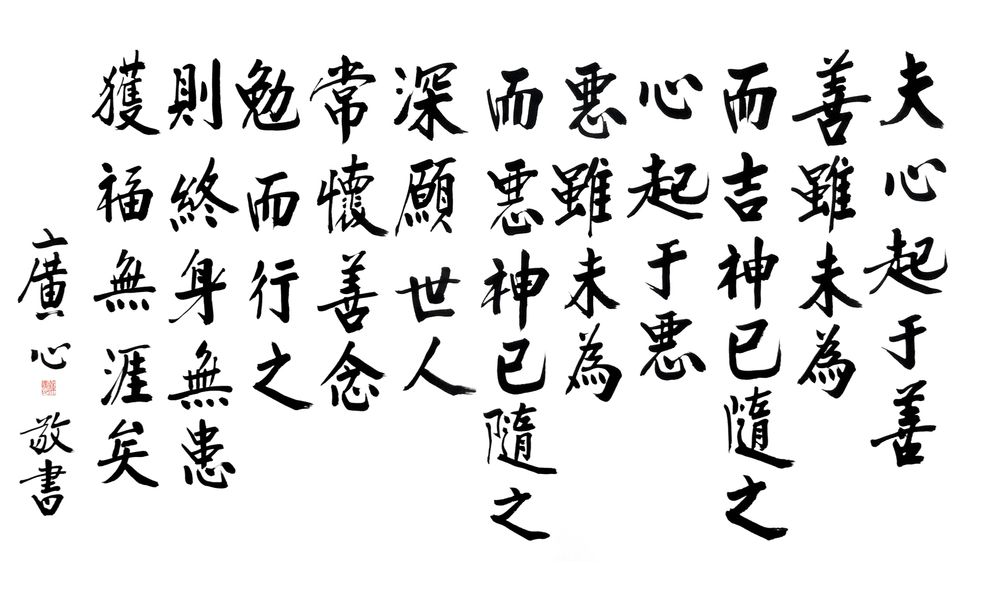 夫心起于善
善雖未為
而吉神已隨之
心起于悪
悪雖未為
而悪神已隨之
深願世人
常懷善念
勉而行之
則終身無患
獲福無涯矣
廣心敬書